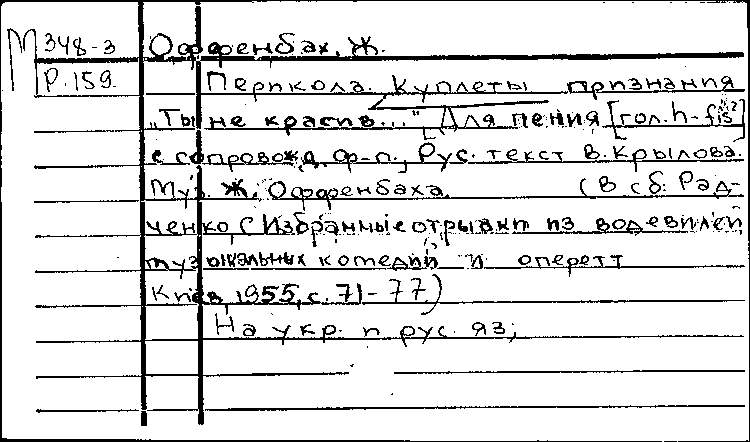 М 348-3 Оффенбах, Ж.
Р. 159. Перикола. Куплеты признания
„Ты не красив..." Для пения [гол. h-fis²]
с сопровожд. ф-п., Рус. текст В. Крылова.
Муз. Ж. Оффенбаха. (В сб: Рад-
ченко, С Избранные отрывки из водевилей
музыкальных комедий и оперетт
Киев, 1955, с. 71-77.)
На укр. и рус. яз;